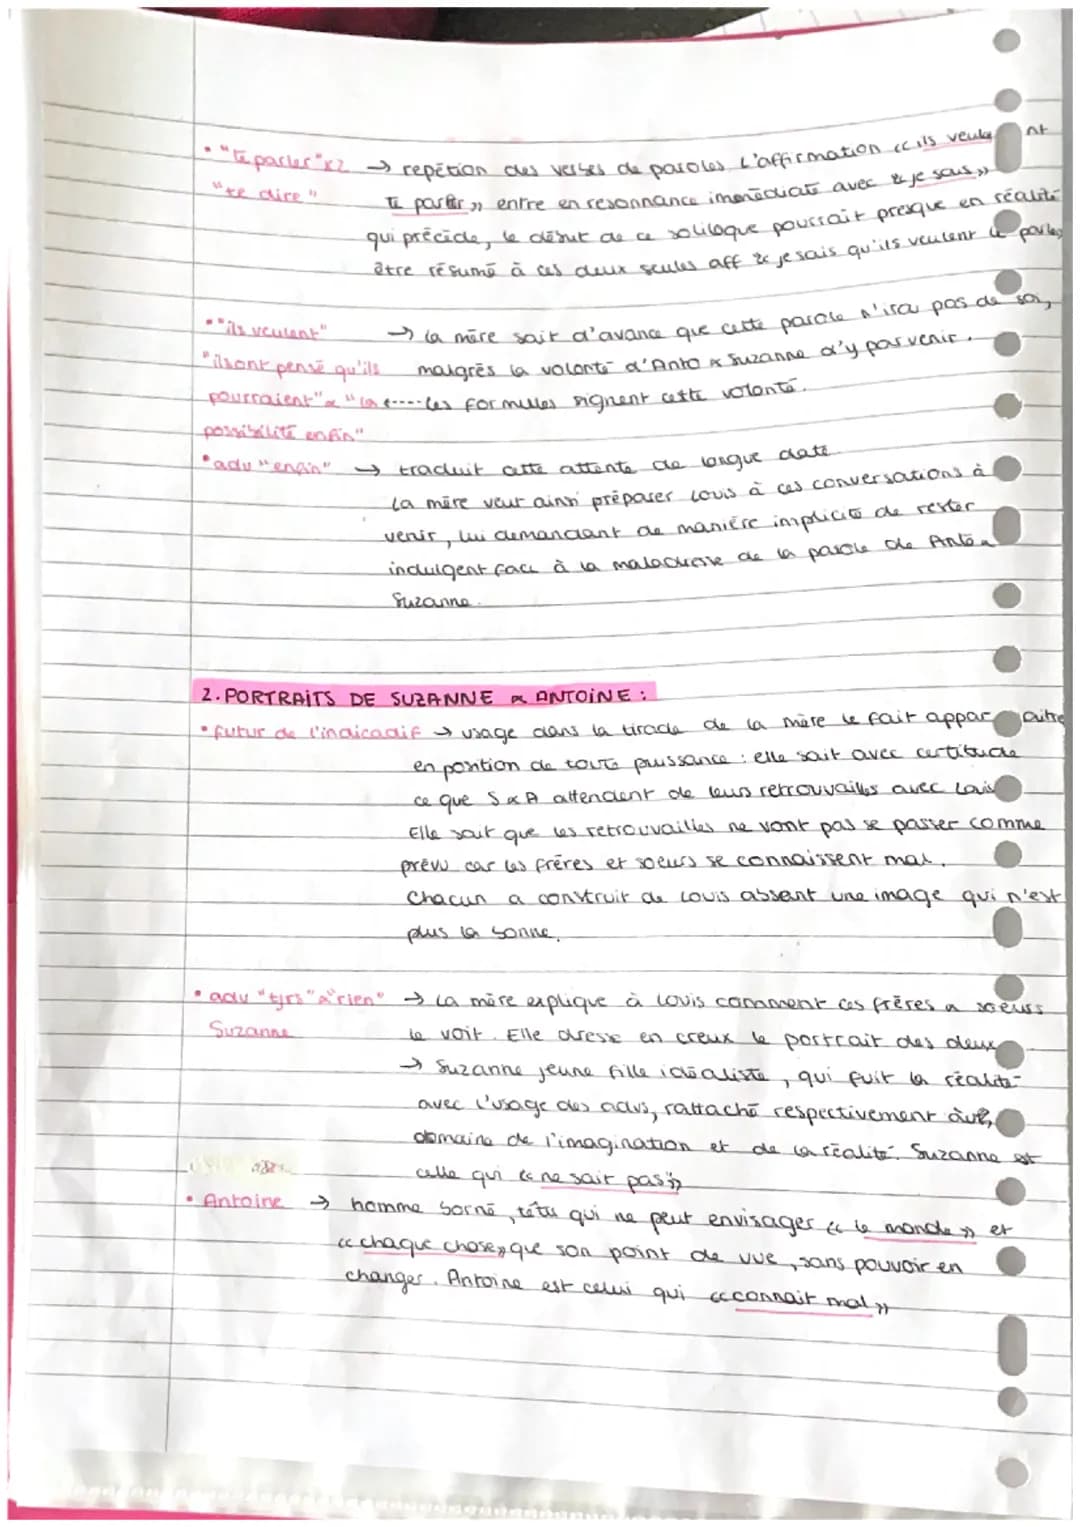 • "te parler" x2 → repétion des verbes de paroles. L'affirmation « ils veulent
"te dire" te parler » entre en resonnance immédiate avec « je sais »
qui précède, le début de ce soliloque pourrait presque en réalité
être résumé à ces deux seules aff « je sais qu'ils veulent te parler
• "ils veulent" → la mère sait d'avance que cette parole n'ira pas de soi,
"ils ont pensé qu'ils malgrès la volonté d'Anto & Suzanne d'y parvenir.
pourraient" & "la ←---- les formules signent cette volonté.
possibilité enfin"
• adv "enfin" → traduit cette attente de longue date.
La mère veut ainsi préparer Louis à ces conversations à
venir, lui demandant de manière implicite de rester
indulgent face à la maladresse de la parole de Anto &
Suzanne.
2. PORTRAITS DE SUZANNE & ANTOINE :
• futur de l'indicadif → usage dans la tirade de la mère le fait apparaître
en position de toute puissance : elle sait avec certitude
ce que S & A attendent de leus retrouvailles avec Louis
Elle sait que les retrouvailles ne vont pas se passer comme
prévu car les frères et soeurs se connaissent mal.
Chacun a construit de Louis absent une image qui n'est
plus la bonne.
• adv "tjrs" & "rien" → La mère explique à Louis comment ces frères & soeurs
Suzanne le voit. Elle dresse en creux le portrait des deux
→ Suzanne jeune fille idéaliste, qui fuit la réalité
avec l'usage des advs, rattaché respectivement
domaine de l'imagination et de la réalité. Suzanne est
celle qui « ne sait pas »
• Antoine → homme borné, têtu qui ne peut envisager « le monde » et
« chaque chose » que son point de vue, sans pouvoir en
changer. Antoine est celui qui « connait mal »